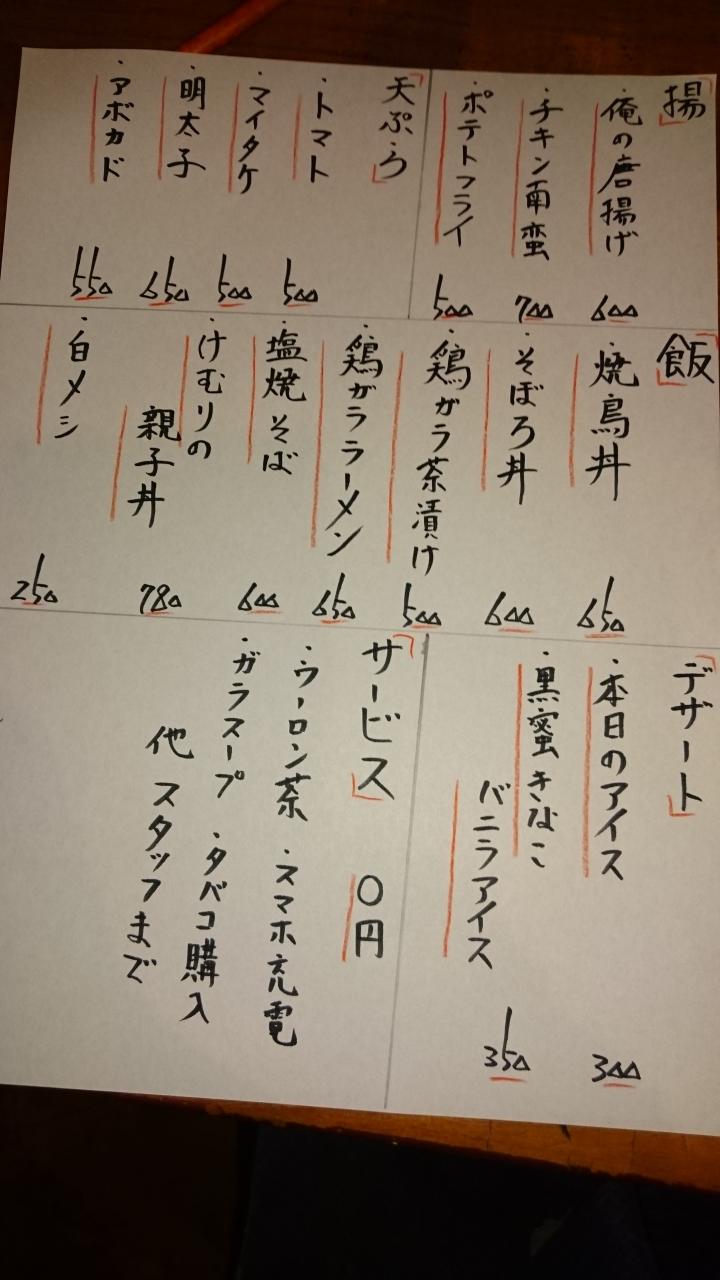 揚
・俺の唐揚げ 600
・チキン南蛮 700
・ポテトフライ 500
天ぷら
・トマト 500
・マイタケ 500
・明太子 650
・アボカド 550
飯
・焼鳥丼 650
・そぼろ丼 600
・鶏ガラ茶漬け 500
・鶏ガララーメン 650
・塩焼そば 600
・けむりの
親子丼 780
・白メシ 250
デザート
・本日のアイス 300
・黒蜜きなこ
バニラアイス 350
サービス 〇円
・ウーロン茶 ・スマホ充電
・ガラスープ ・タバコ購入
他 スタッフまで